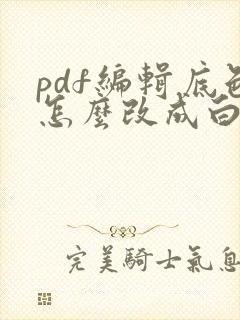 pdf編輯底色
怎麼改成白
完美騎士氣息